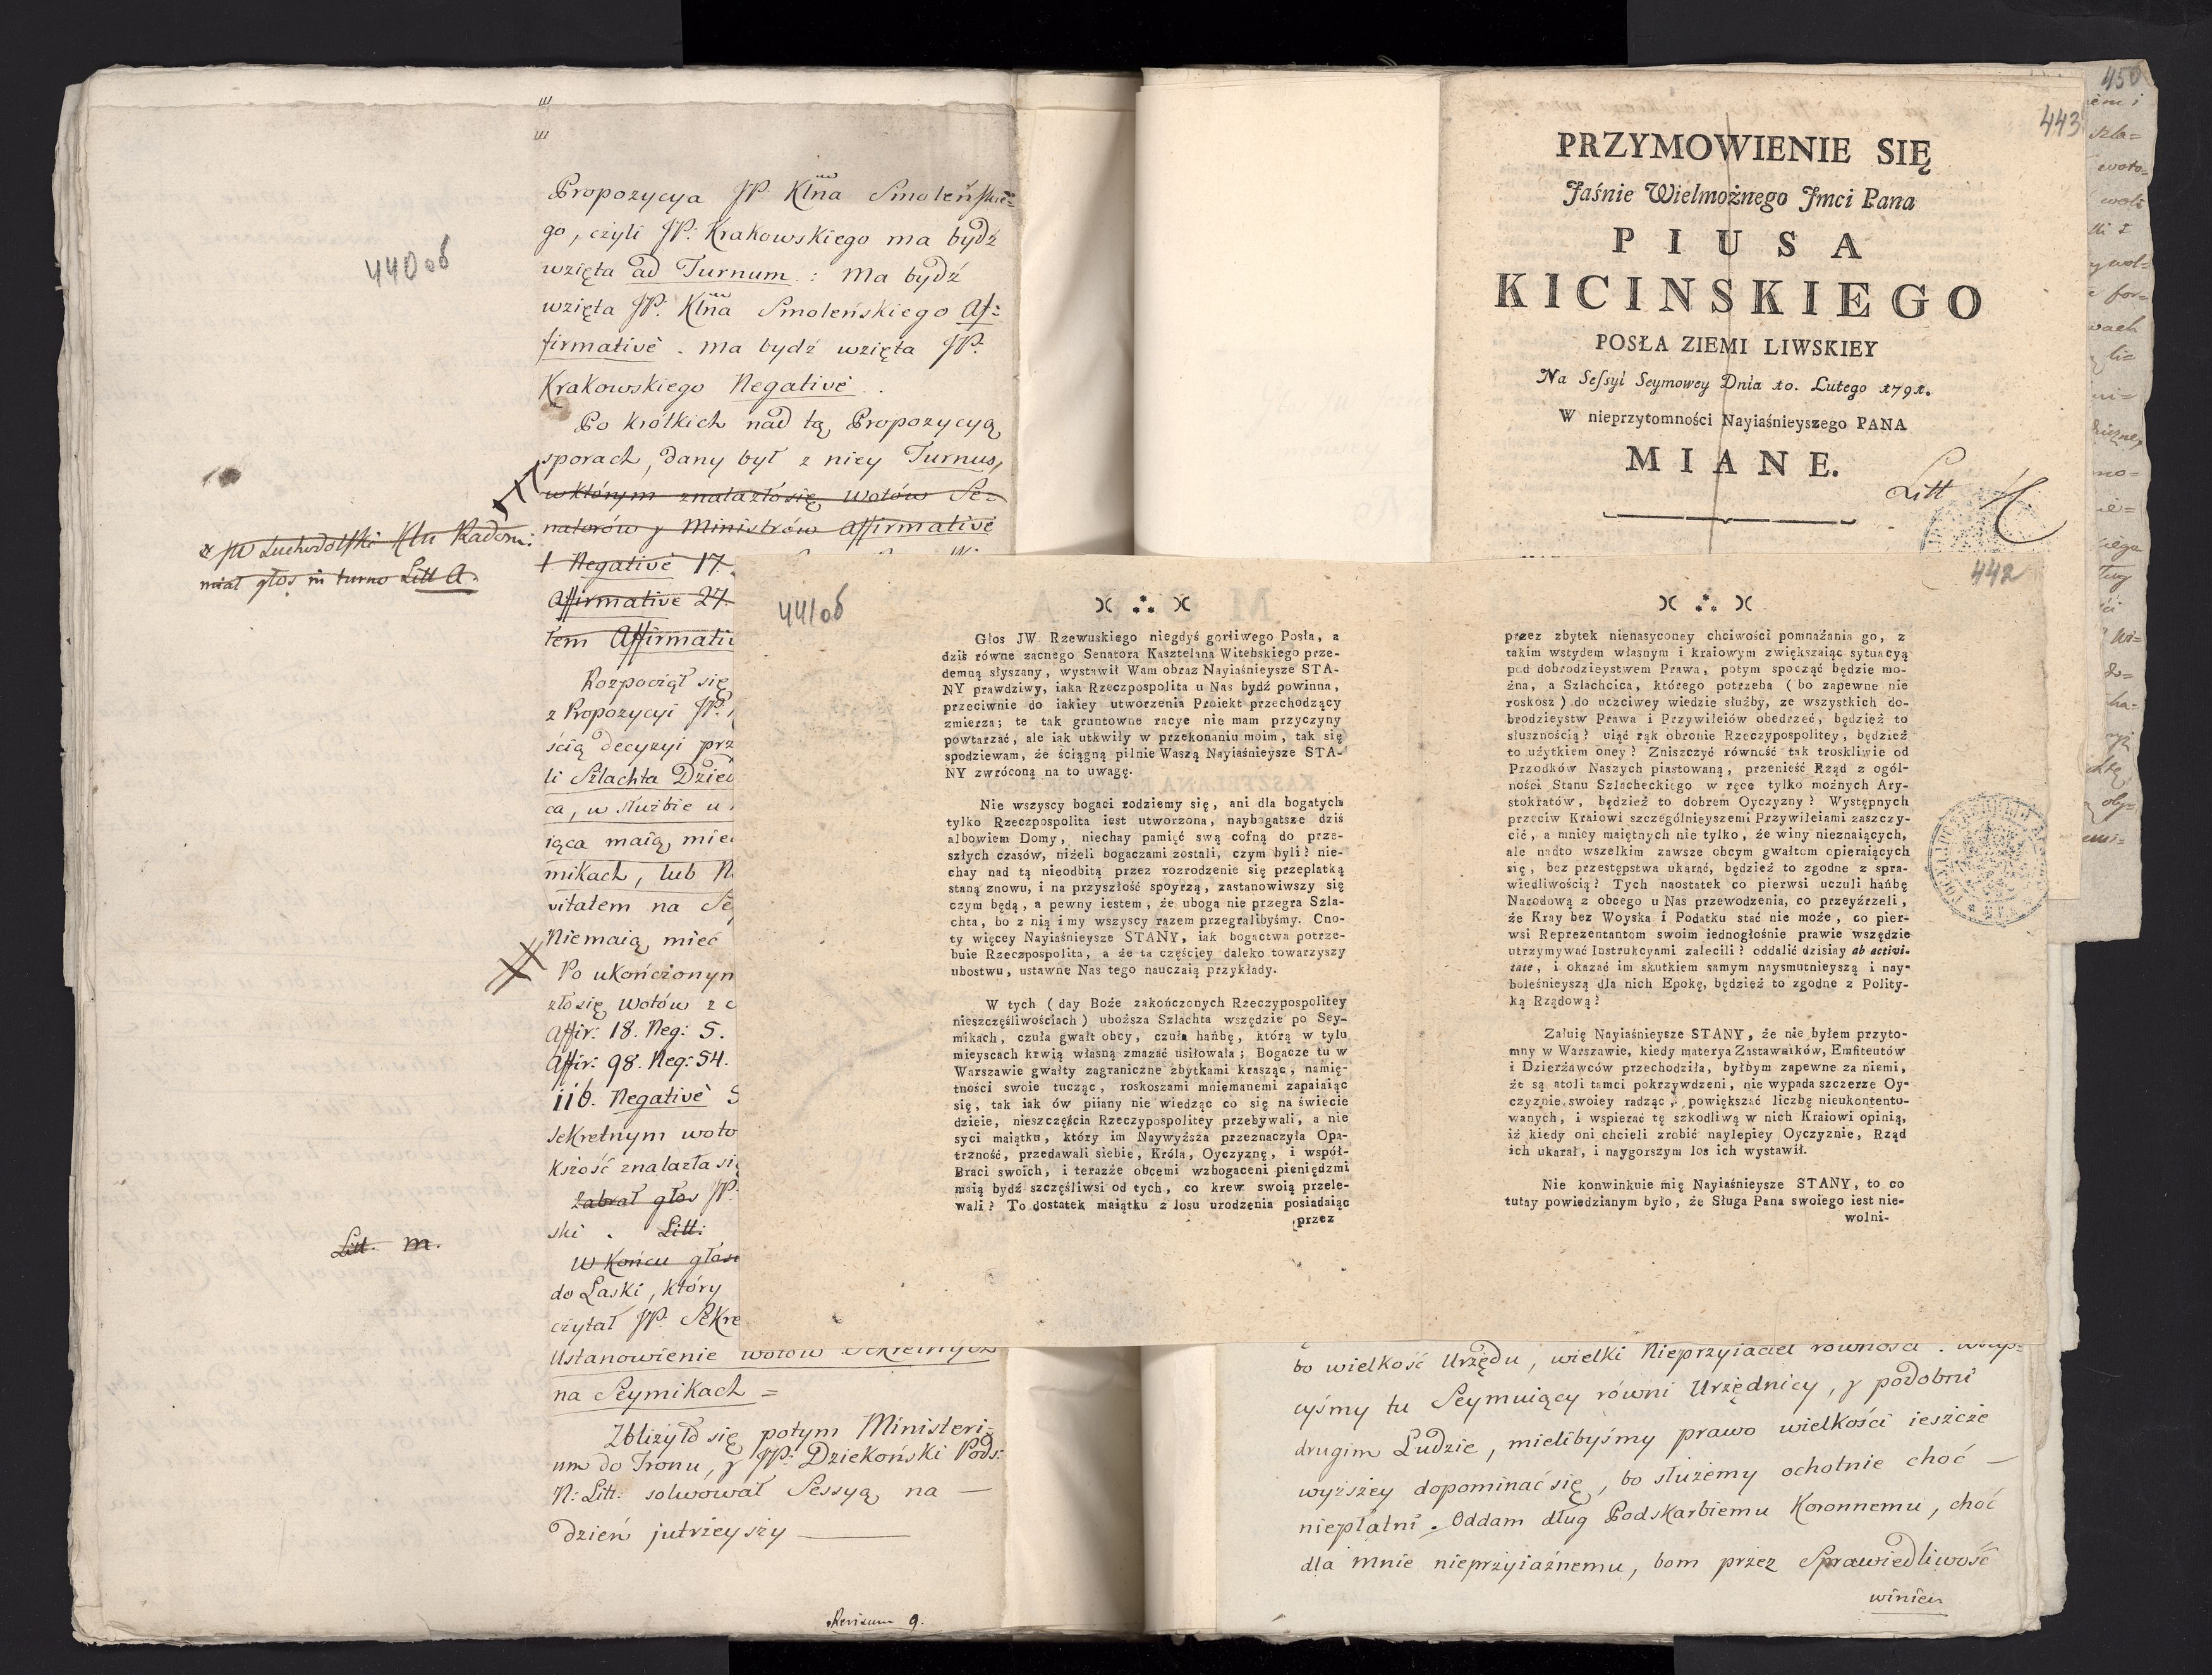 440 об
Propozycya JP. Kłna Smoleńskie=
go, czyli JP: Krakowskiego ma bydź
wzięta ad Turnum : Ma bydź
wzięta JP. Kłna Smoleńskiego Af=
firmativè. ma bydź wzięta JP.
Krakowskiego Negativè.
Po krótkich nad tą Propozycyą
sporach, dany był z niey Turnus,
w którym znalazło się Wotów Se=
natorów y Ministrów Affirmativè
1 Negativè 17.
Affirmativè 27.
tem Affirmati
JW Suchodolski Kln Radom:
miał głos in turno Litt A.
Rozpoczął się
z Propozycyi JP.
ścią decyzyi prz
li Szlachta Dzied
ca, w służbie u
iąca maią mie
mikach, lub N
vitatem na Se
Niemaią mieć
Po ukończonym
zło się Wotów z
Affir: 18. Neg: 5.
Affir: 98. Neg: 54.
116. Negativè 5
sekretnym woto
kszość znalazła się
Zabrał głos JP.
ski . Litt:
Litt. M.
W końcu głosu
do Laski, który
czytał JP. Sekre
Ustanowienie wotów Sekretnych
na Seymikach =
Zbliżyło się potym Ministeri=
um do Tronu, y JP: Dziekoński Pods:
N: Litt: solwował Sessyą na —
dzień jutrzeyszy
Revisum 9.
450
443
PRZYMOWIENIE SIĘ
Jaśnie Wielmożnego Jmci Pana
PIUSA
KICINSKIEGO
POSŁA ZIEMI LIWSKIEY
Na Sessyi Seymowey Dnia 10. Lutego 1791.
W nieprzytomności Nayiaśnieyszego PANA
MIANE.
Litt
441об
Głos JW. Rzewuskiego niegdyś gorliwego Posła, a
dziś równe zacnego Senatora Kasztelana Witebskiego prze-
demną słyszany, wystawił Wam obraz Nayiaśnieysze STA-
NY prawdziwy, iaka Rzeczpospolita u Nas bydź powinna,
przeciwnie do iakiey utworzenia Proiekt przechodzący
zmierza; te tak gruntowne racye nie mam przyczyny
powtarzać, ale iak utkwiły w przekonaniu moim, tak się
spodziewam, że ściągną pilnie Waszą Nayiaśnieysze STA-
NY zwróconą na to uwagę.
Nie wszyscy bogaci rodziemy się, ani dla bogatych
tylko Rzeczpospolita iest utworzona, naybogatsze dziś
albowiem Domy, niechay pamięć swą cofną do prze-
szłych czasów, niżeli bogaczami zostali, czym byli? nie-
chay nad tą nieodbitą przez rozrodzenie się przeplatką
staną znowu, i na przyszłość spoyrzą, zastanowiwszy się
czym będą, a pewny iestem, że uboga nie przegra Szla-
chta, bo z nią i my wszyscy razem przegralibyśmy. Cno-
ty więcey Nayiaśnieysze STANY, iak bogactwa potrze-
buie Rzeczpospolita, a że ta częściey daleko towarzyszy
ubostwu, ustawne Nas tego nauczaią przykłady.
W tych (day Boże zakończonych Rzeczypospolitey
nieszczęśliwościach) uboższa Szlachta wszędzie po Sey-
mikach, czuła gwałt obcy, czuła hańbę, którą w tylu
mieyscach krwią własną zmazać usiłowała; Bogacze tu w
Warszawie gwałty zagraniczne zbytkami krasząc, namię-
tności swoie tucząc, roskoszami mniemanemi zapaiaiąc
się, tak iak ów piiany nie wiedząc co się na świecie
dzieie, nieszczęścia Rzeczypospolitey przebywali, a nie
syci maiątku, który im Naywyższa przeznaczyła Opa-
trzność, przedawali siebie, Króla, Oyczyznę, i współ-
Braci swoich, i terazże obcemi wzbogaceni pieniędzmi
maią bydź szczęśliwsi od tych, co krew swoią przele-
wali? To dostatek maiątku z losu urodzenia posiadaiąc
przez
442
przez zbytek nienasyconey chciwości pomnażania go, z
takim wstydem własnym i kraiowym zwiększaiąc sytuacyą
pod dobrodzieystwem Prawa, potym spocząć będzie mo-
żna, a Szlachcica, którego potrzeba (bo zapewne nie
roskosz) do uczciwey wiedzie służby, ze wszystkich do-
brodzieystw Prawa i Przywileiów obedrzeć, będzież to
słusznością? uiąć rąk obronie Rzeczypospolitey, będzież
to użytkiem oney? Zniszczyć równość tak troskliwie od
Przodków Naszych piastowaną, przenieść Rząd z ogól-
ności Stanu Szlacheckiego w ręce tylko możnych Ary-
stokratów, będzież to dobrem Oyczyzny? Występnych
przeciw Kraiowi szczególnieyszemi Przywileiami zaszczy-
cić, a mniey maiętnych nie tylko, że winy nieznaiących,
ale nadto wszelkim zawsze obcym gwałtom opieraiących
się, bez przestępstwa ukarać, będzież to zgodne z spra-
wiedliwością? Tych naostatek co pierwsi uczuli hańbę
Narodową z obcego u Nas przewodzenia, co przeyźrzeli,
że Kray bez Woyska i Podatku stać nie może, co pier-
wsi Reprezentantom swoim iednogłośnie prawie wszędzie
utrzymywać Instrukcyami zalecili? oddalić dzisiay ab activi-
tate, i okazać im skutkiem samym naysmutnieyszą i nay-
boleśnieyszą dla nich Epokę, będzież to zgodne z Polity-
ką Rządową?
Załuię Nayiaśnieysze STANY, że nie byłem przyto-
mny w Warszawie, kiedy materya Zastawników, Emfiteutów
i Dzierżawców przechodziła, byłbym zapewne za niemi,
że są atoli tamci pokrzywdzeni, nie wypada szczerze Oy-
czyznie swoiey radząc, powiększać liczbę nieukontento-
wanych, i wspierać tę szkodliwą w nich Kraiowi opinią,
iż kiedy oni chcieli zrobić naylepiey Oyczyznie, Rząd
ich ukarał, i naygorszym los ich wystawił.
Nie konwinkuie mię Nayiaśnieysze STANY, to co
tutay powiedzianym było, że Sługa Pana swoiego iest nie-
wolni-
bo wielkość Urzędu, wielki Nieprzyiaciel równości.
cyśmy tu Seymuiący równi Urzędnicy, y podobni
drugim Ludzie, mielibyśmy prawo wielkości ieszcze
wyższey dopominać się, bo służemy ochotnie choć —
niepłatni. Oddam dług Podskarbiemu Koronnemu, choć
dla mnie nieprzyiaźnemu, bom przez Sprawiedliwość
winien